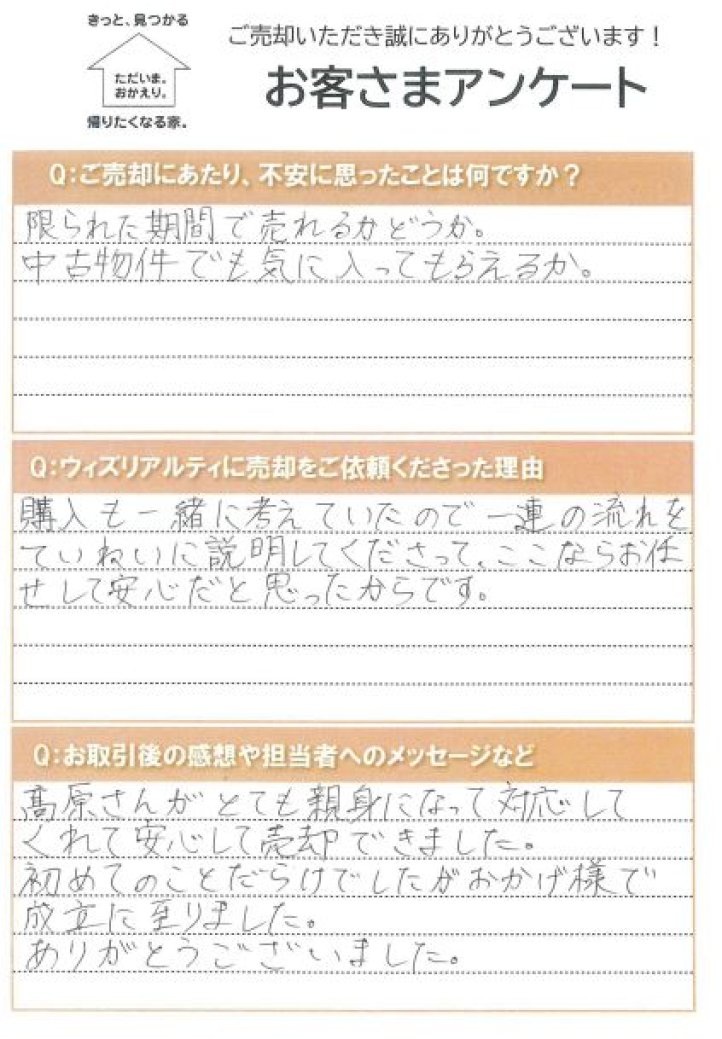 きっと、見つかる
ただいま。
おかえり。
帰りたくなる家。
ご売却いただき誠にありがとうございます！
お客さまアンケート
Q：ご売却にあたり、不安に思ったことは何ですか？
限られた期間で売れるかどうか。
中古物件でも気に入ってもらえるか。
Q：ウィズリアルティに売却をご依頼くださった理由
購入も一緒に考えていたので一連の流れを
ていねいに説明してくださって、ここならお任
せして安心だと思ったからです。
Q：お取引後の感想や担当者へのメッセージなど
髙原さんがとても親身になって対応して
くれて安心して売却できました。
初めてのことだらけでしたがおかげ様で
成立に至りました。
ありがとうございました。